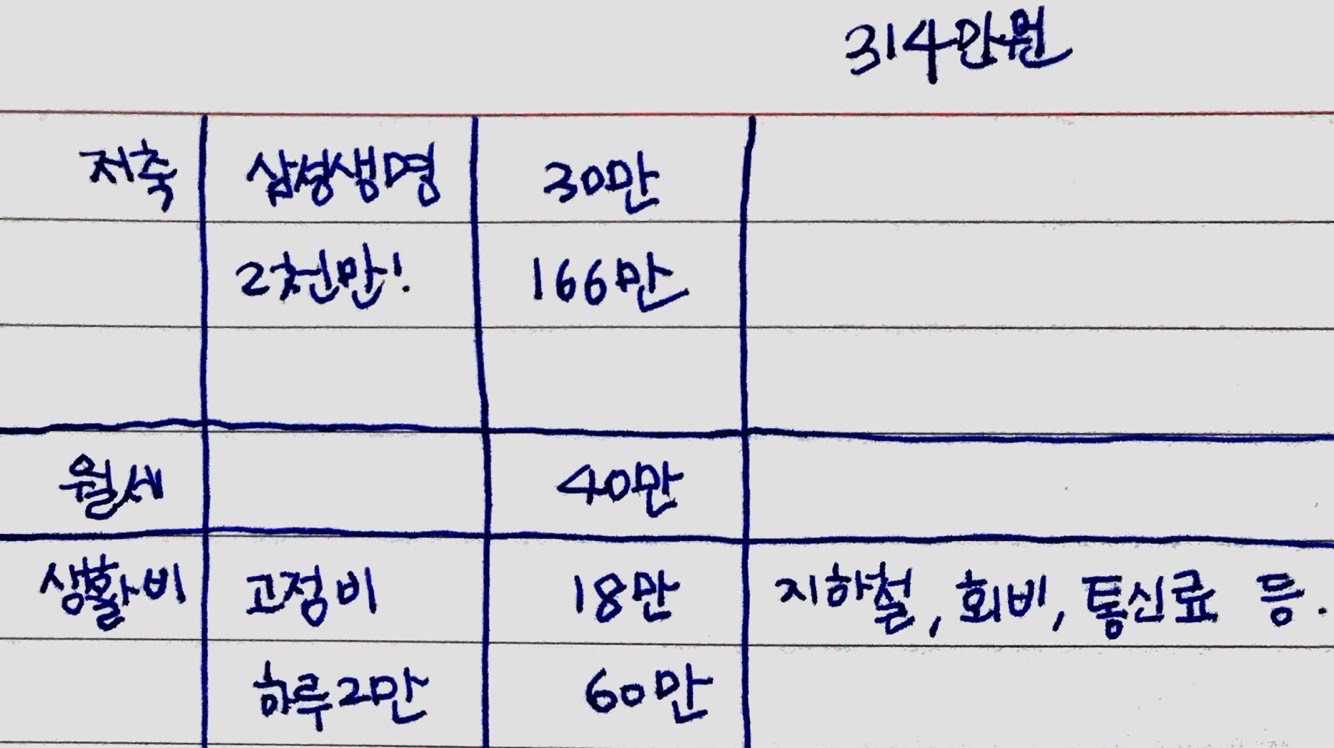 314만원
저축 삼성생명 30만
2천만! 166만
월세 40만
생활비 고정비 18만 지하철, 회비, 통신료 등.
하루2만 60만